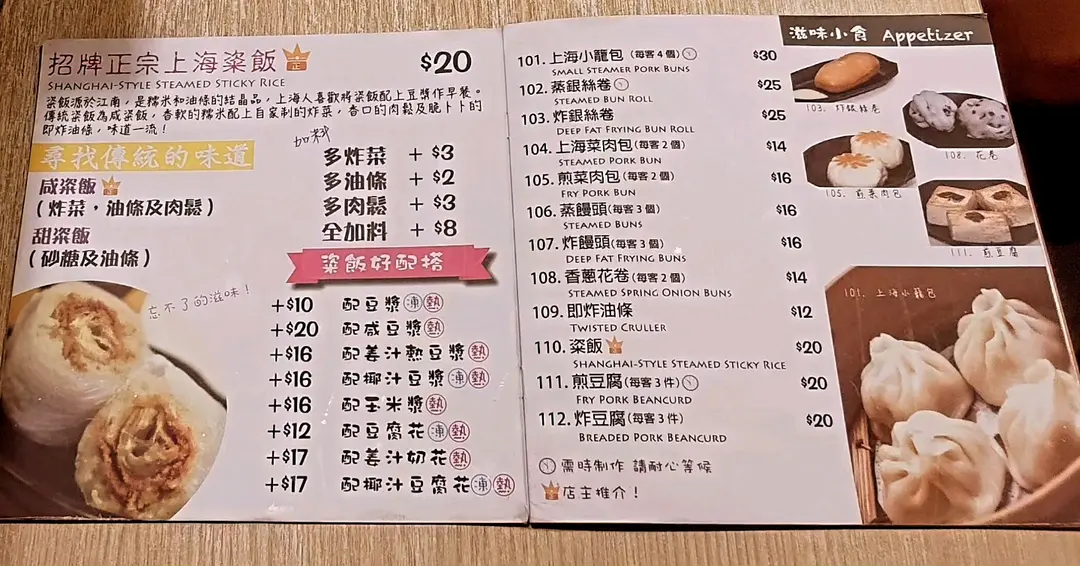 招牌正宗上海粢飯 正 $20
SHANGHAI-STYLE STEAMED STICKY RICE
粢飯源於江南，是糯米和油條的結晶品，上海人喜歡將粢飯配上豆漿作早餐。
傳統粢飯為咸粢飯，香軟的糯米配上自家制的炸菜，香口的肉鬆及脆卜卜的
即炸油條，味道一流！
尋找傳統的味道
咸粢飯
(炸菜，油條及肉鬆)
甜粢飯
(砂糖及油條)
加料
多炸菜 + $3
多油條 + $2
多肉鬆 + $3
全加料 + $8
粢飯好配搭
忘不了的滋味！
+$10 配豆漿 凍 熱
+$20 配咸豆漿 熱
+$16 配姜汁熱豆漿 熱
+$16 配椰汁豆漿 凍 熱
+$16 配玉米漿 熱
+$12 配豆腐花 凍 熱
+$17 配姜汁奶花 熱
+$17 配椰汁豆腐花 凍 熱
滋味小食 Appetizer
101. 上海小籠包 (每客4個) $30
SMALL STEAMER PORK BUNS
102. 蒸銀絲卷 $25
STEAMED BUN ROLL
103. 炸銀絲卷 $25
DEEP FAT FRYING BUN ROLL
104. 上海菜肉包 (每客2個) $14
STEAMED PORK BUN
105. 煎菜肉包 (每客2個) $16
FRY PORK BUN
106. 蒸饅頭 (每客3個) $16
STEAMED BUNS
107. 炸饅頭 (每客3個) $16
DEEP FAT FRYING BUNS
108. 香蔥花卷 (每客2個) $14
STEAMED SPRING ONION BUNS
109. 即炸油條 $12
TWISTED CRULLER
110. 粢飯 $20
SHANGHAI-STYLE STEAMED STICKY RICE
111. 煎豆腐 (每客3件) $20
FRY PORK BEANCURD
112. 炸豆腐 (每客3件) $20
BREADED PORK BEANCURD
需時制作 請耐心等候
店主推介！
103. 炸銀絲卷
108. 花卷
105. 煎菜肉包
111. 煎豆腐
101. 上海小籠包